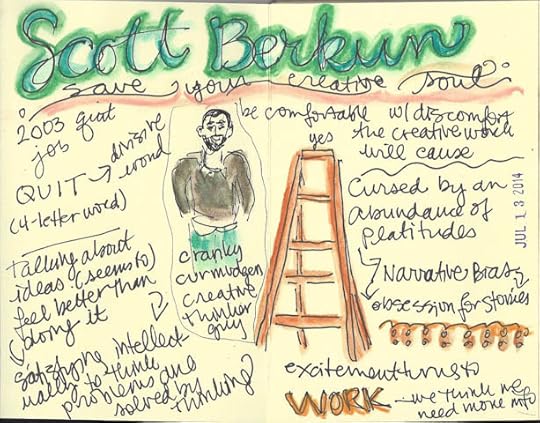 Scott Berkun
save your creative soul
2003 quit
job
QUIT → divisive
word
(4-letter word)
talking about
ideas (seems to)
feel better than
doing it
satisfying intellect
ually to think
problems are
solved by
thinking
cranky
curmudgen
creative
thinker
guy
be comfortable w/ discomfort
the creative work
will cause
yes
Cursed by an
abundance of
platitudes
Narrative Bias
obsession for stories
JUL 13 2014
excitement turns to
WORK
we think we
need more info